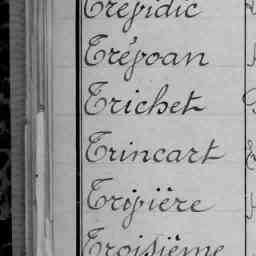 Trépidic
Trépoan
Trichet
Trincart
Tripière
Troisième